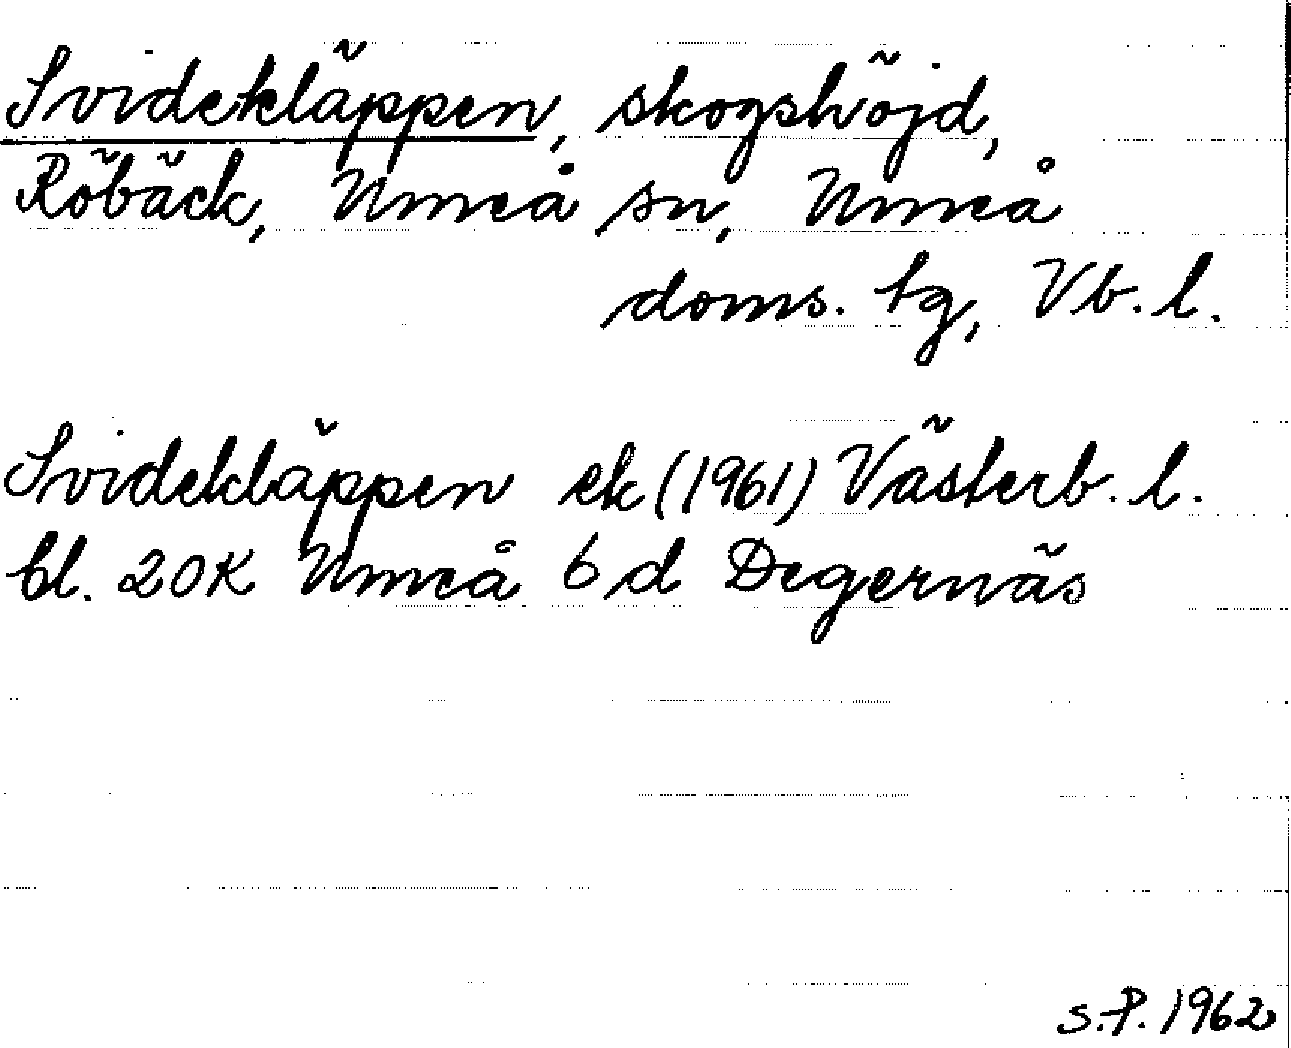 Svidekläppen, skogshöjd,
Röbäck, Umeå sn, Umeå
doms. tg, Vb. l.
Svidekläppen ek (1961) Västerb. l.
bl. 20K Umeå 6 d Degernäs
S.P. 1962